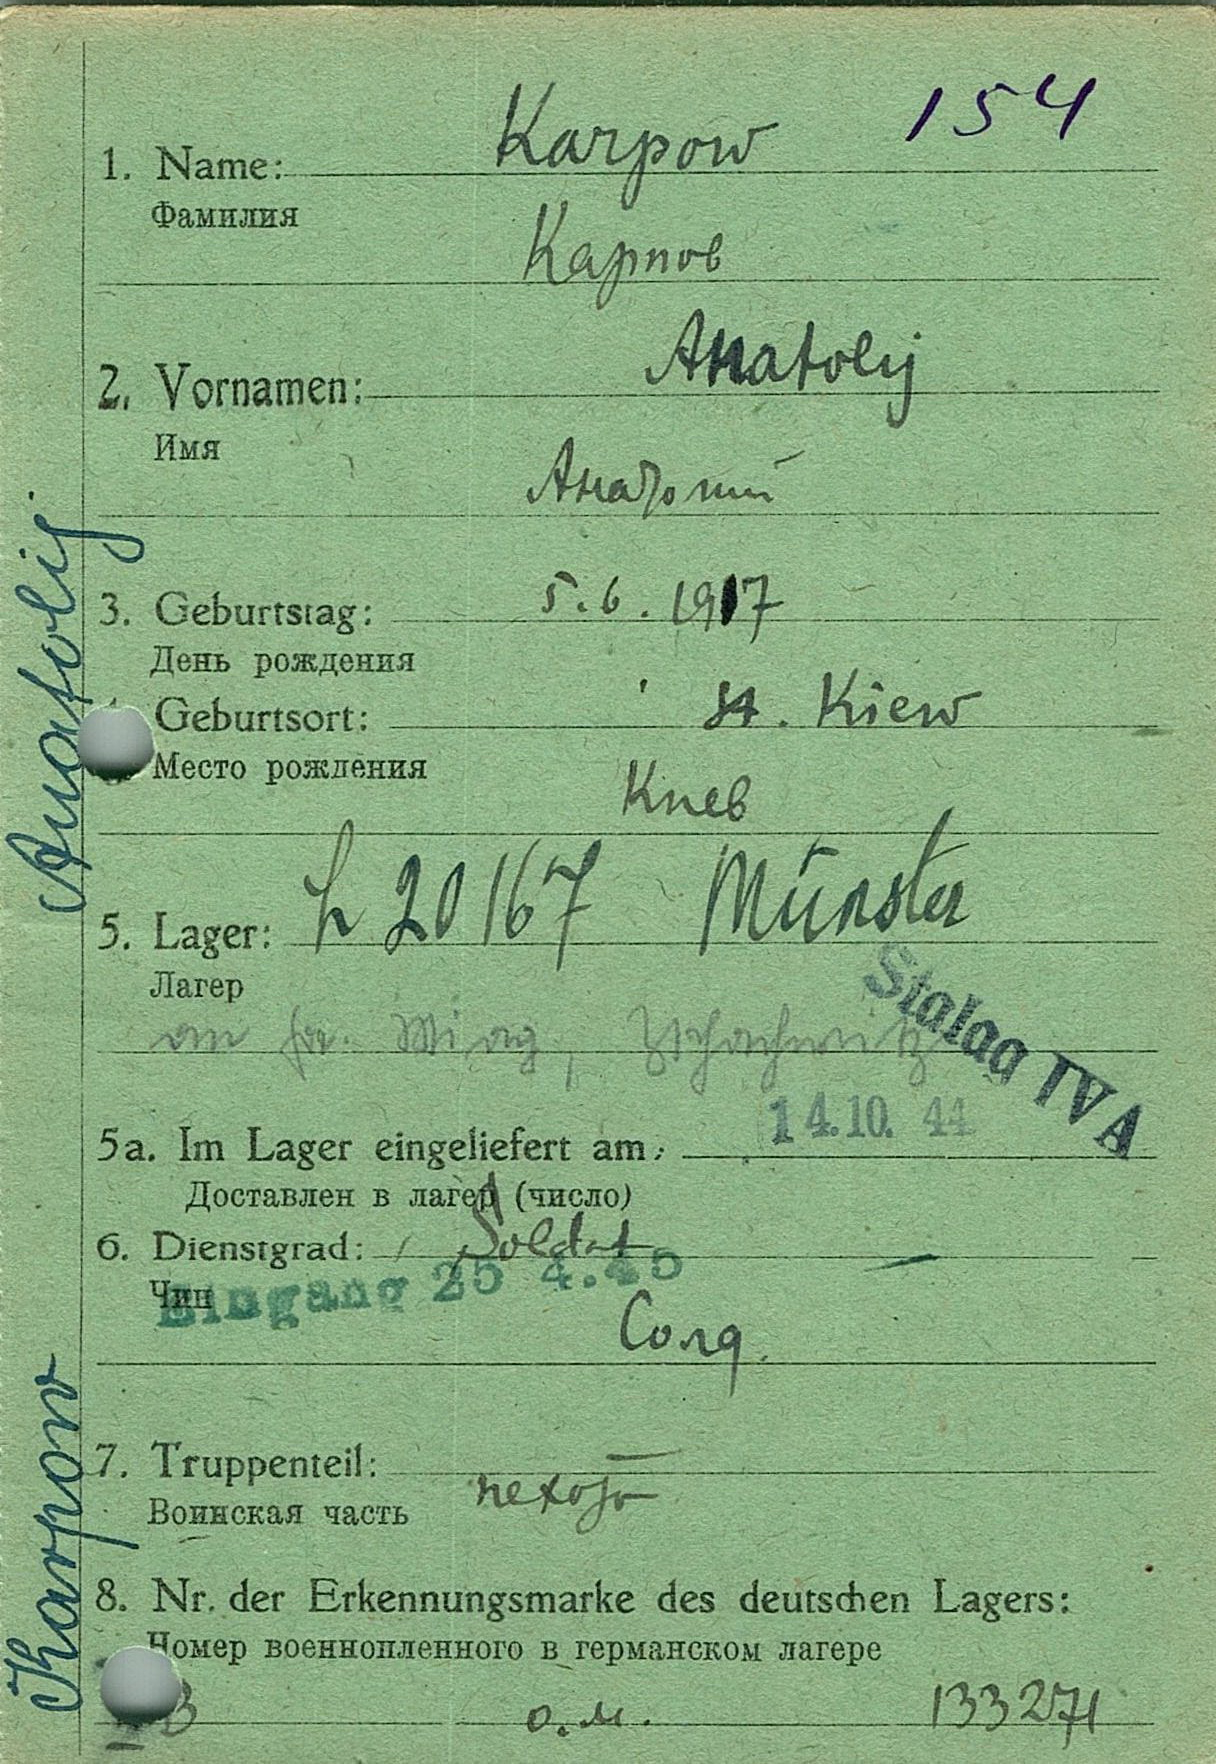 154
1. Name: Karpow
Фамилия
Карпов
2. Vornamen: Anatolij
Имя
Анатолий
3. Geburtstag: 5.6.1917
День рождения
Geburtsort: St. Kiew
Место рождения
Киев
5. Lager: h 20167 Münster
Лагер
an fa. Miag, Zschachwitz
Stalag IV A
14.10. 44
5a. Im Lager eingeliefert am:
Доставлен в лагер (число)
6. Dienstgrad: Soldat
Чин
Eingang 25 4.45
Солд.
7. Truppenteil:
Воинская часть
пехота
8. Nr. der Erkennungsmarke des deutschen Lagers:
Номер военнопленного в германском лагере
B о.м. 133271
Karpow Anatolij